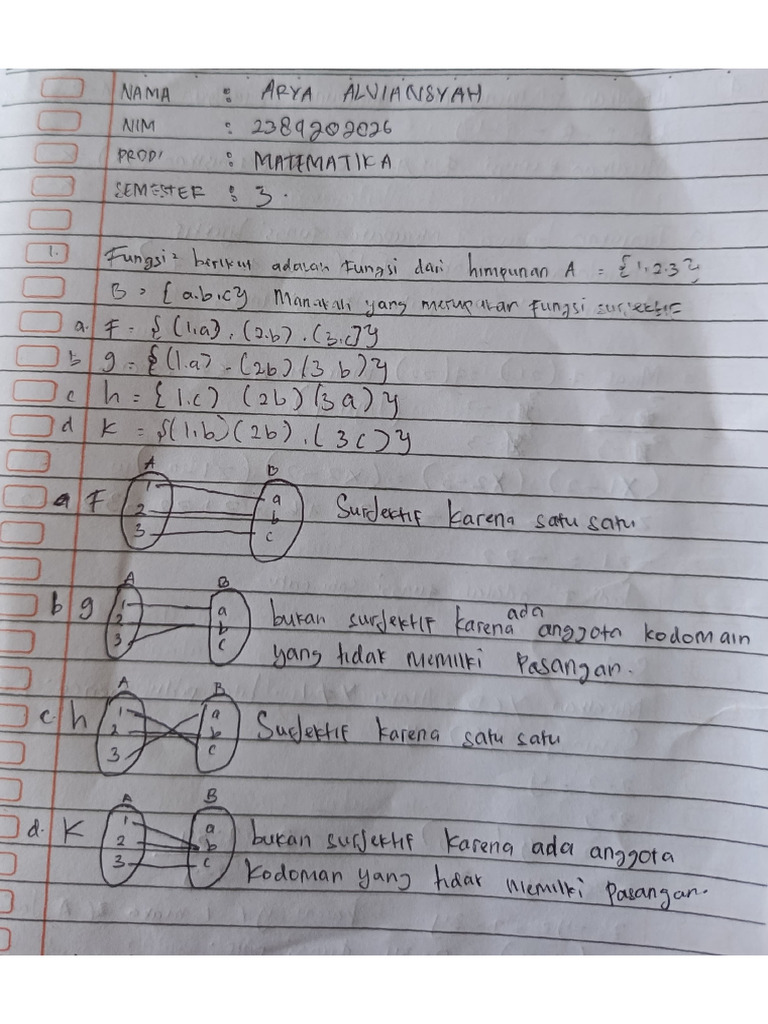 NAMA : ARYA ALVIANSYAH
NIM : 2389202026
PRODI : MATEMATIKA
SEMESTER : 3.
1. Fungsi² berikut adalah fungsi dari himpunan A = {1,2.3}
B = {a.b.c} Manakah yang merupakan fungsi surjektif
a. F = {(1.a), (2.b). (3.c)}
b g = {(1.a) - (2b) (3 b)}
c h = {1.c) (2b) (3a)}
d K = {(1,b) (2b). (3c)}
A B
a F 1 2 3 a b c Surjektif karena satu satu
A B
b g 1 2 3 a b c bukan surjektif karena ada anggota kodomain
yang tidak memilki Pasangan.
A B
c. h 1 2 3 a b c Surjektif karena satu satu
A B
d. K 1 2 3 a b c bukan surjektif karena ada anggota
kodoman yang tidak memilki Pasangan.